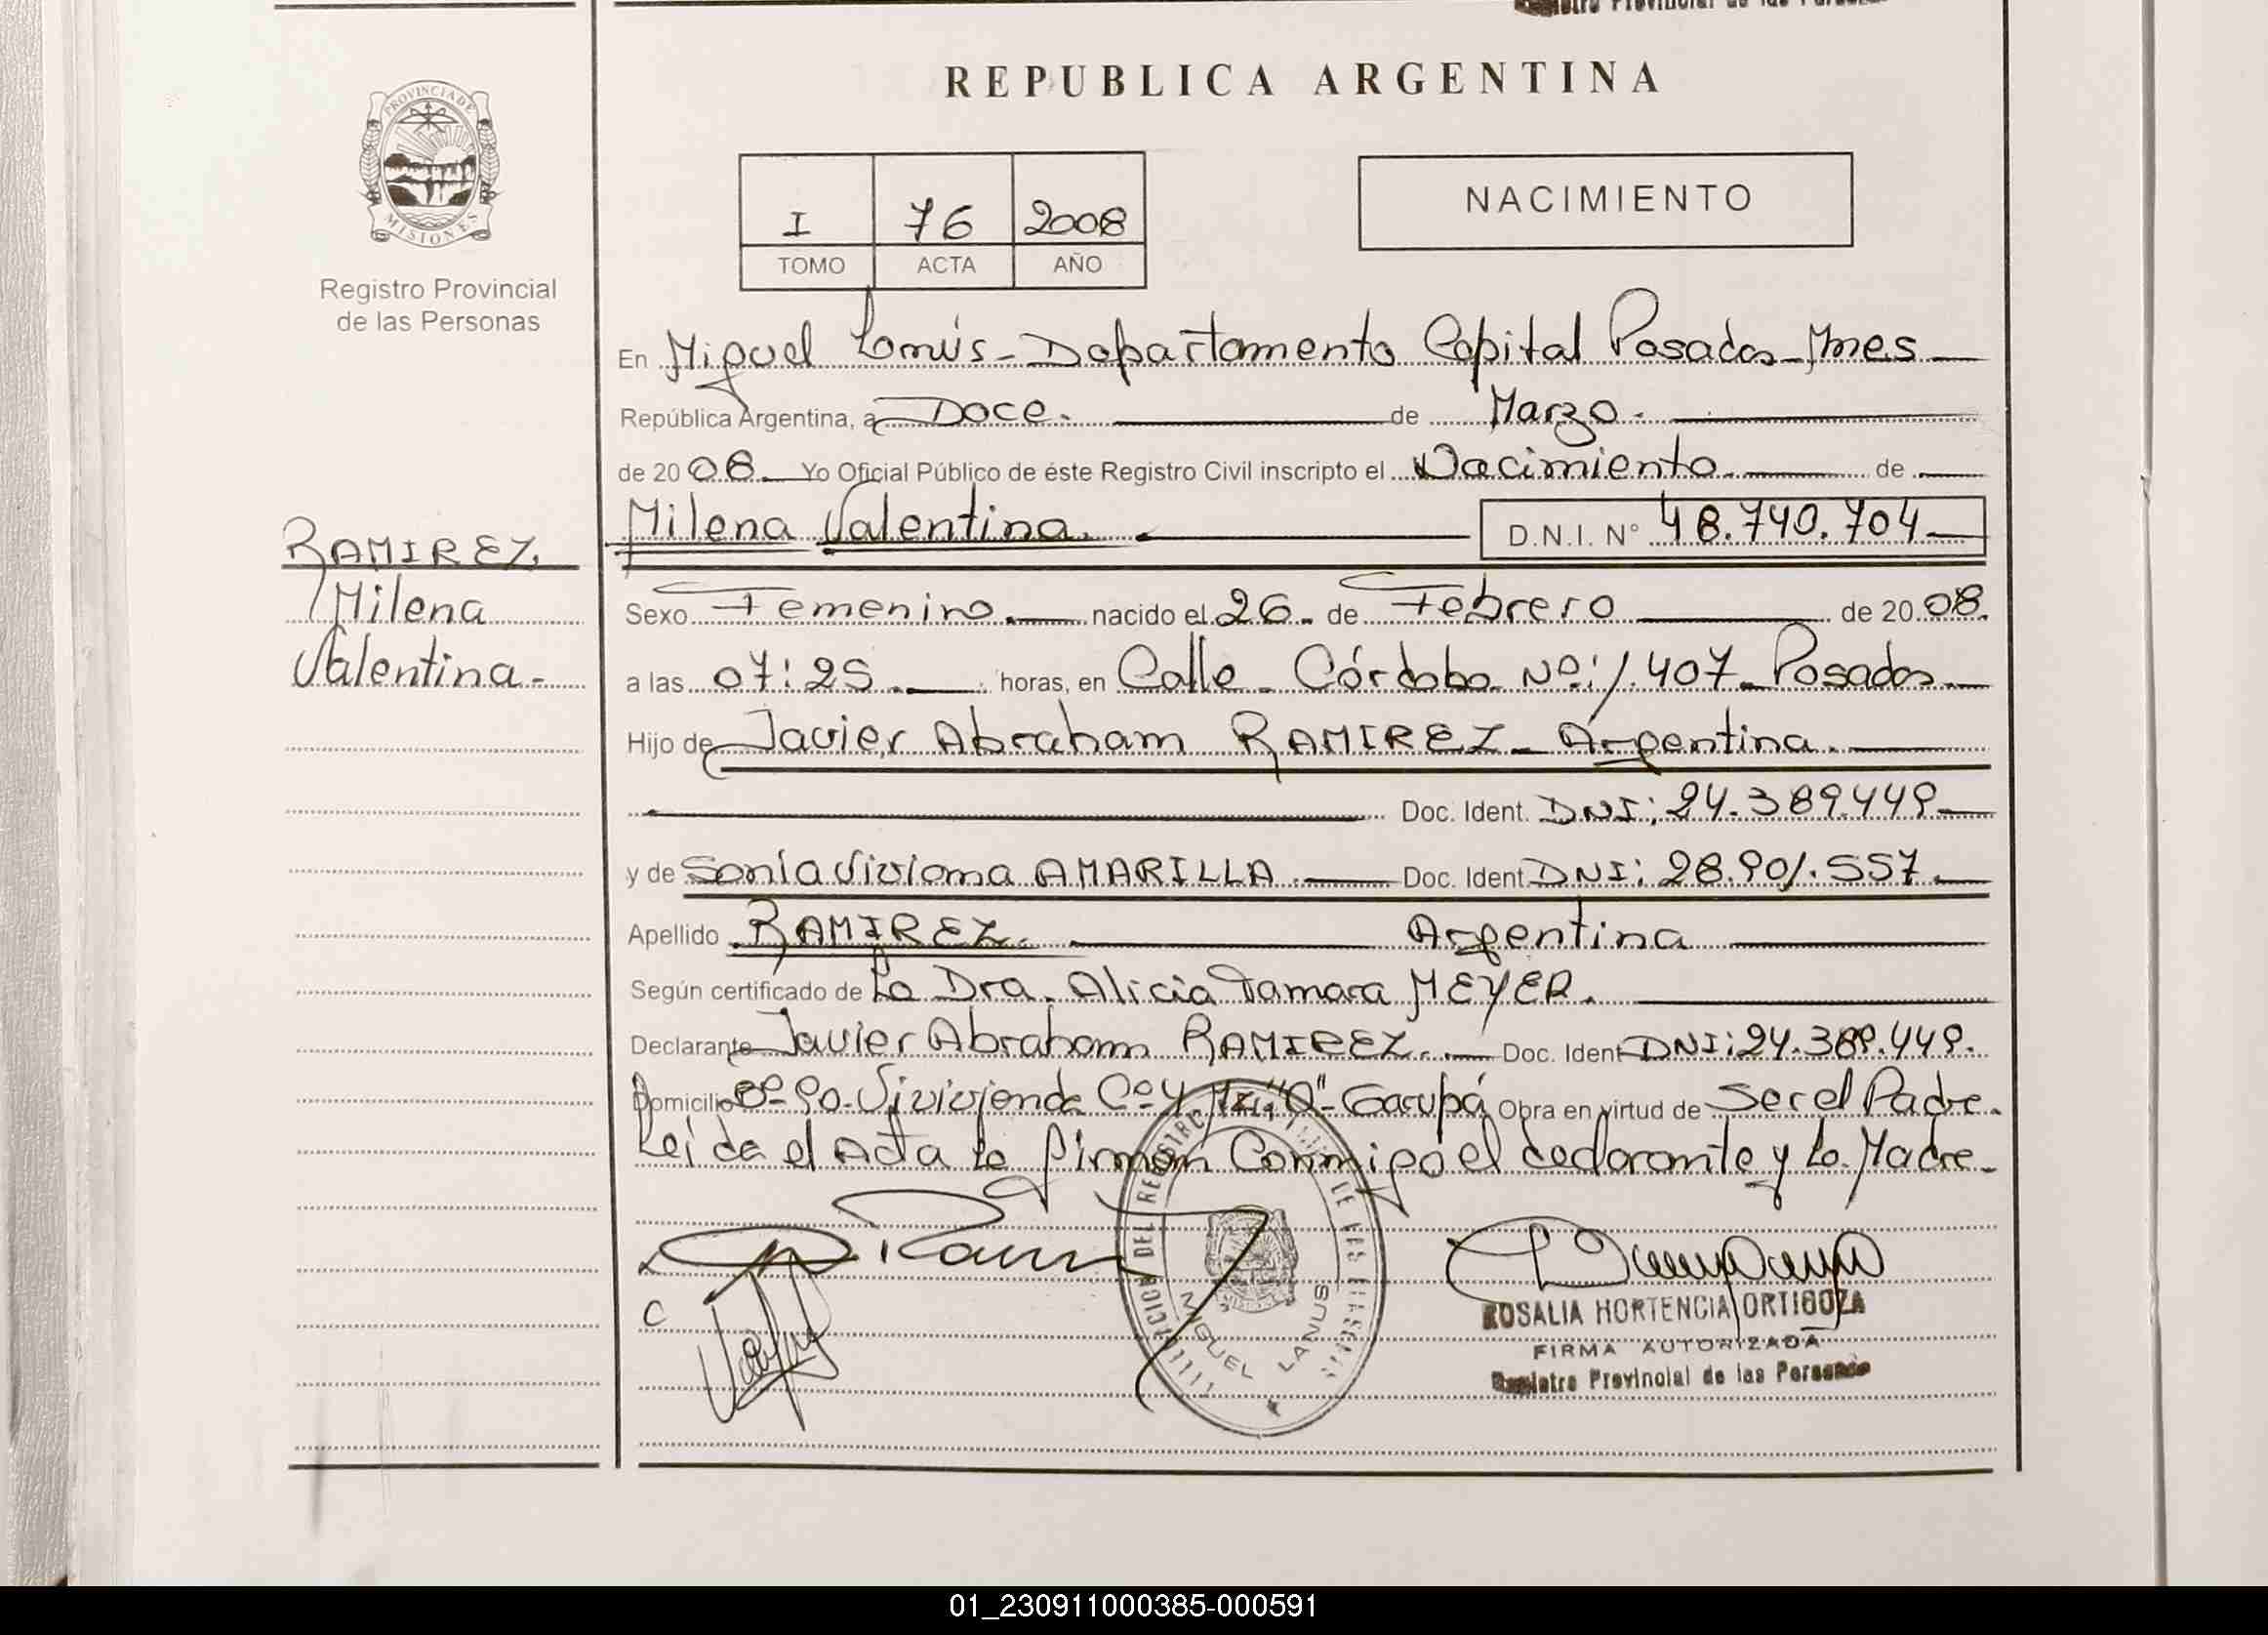 Registro Provincial de las Personas
REPUBLICA ARGENTINA
PROVINCIA DE
MISIONES
Registro Provincial
de las Personas
I 76 2008
TOMO ACTA AÑO
NACIMIENTO
En Miguel Lanús - Departamento Capital Posadas - Mnes
República Argentina, a Doce. de Marzo.
de 2008. Yo Oficial Público de éste Registro Civil inscripto el Nacimiento de
Milena Valentina. D.N.I. N° 48.740.704
RAMIREZ,
Milena
Valentina.-
Sexo Femenino. nacido el 26 de Febrero de 2008.
a las 07:25 horas, en Calle Córdoba Nº: 1.407 Posadas
Hijo de Javier Abraham RAMIREZ - Argentina.
Doc. Ident. DNI: 24.389.449
y de Sonia Viviana AMARILLA. Doc. Ident. DNI: 28.901.557.
Apellido RAMIREZ. Argentina
Según certificado de La Dra. Alicia Tamara MEYER.
Declarante Javier Abraham RAMIREZ. Doc. Ident DNI: 24.389.449.
Domicilio Bº 90 Vivivienda Cº 4 Mz: "Garupá Obra en virtud de Ser el Padre.
Leída el Acta la firman Conmigo el declarante y la Madre.
MIGUEL LANUS
ROSALIA HORTENCIA ORTIGOZA
FIRMA AUTORIZADA
Registro Provincial de las Personas
01_230911000385-000591